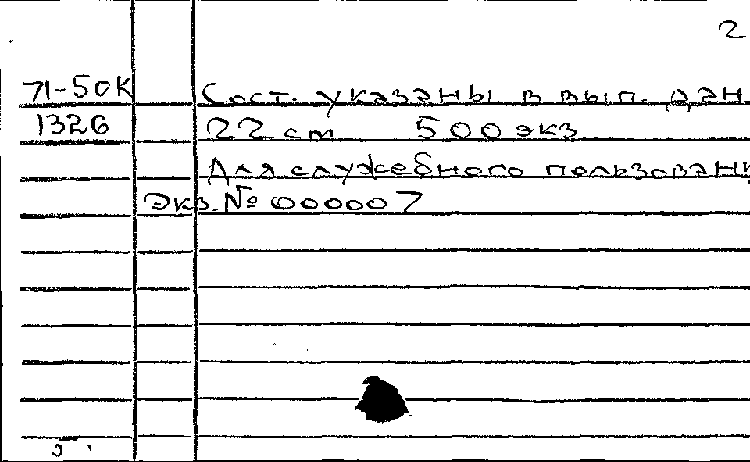 2
71-50К Сост. указаны в вып. дан.
1326 22 см 500 экз
Для служебного пользовани
Экз. № 000007